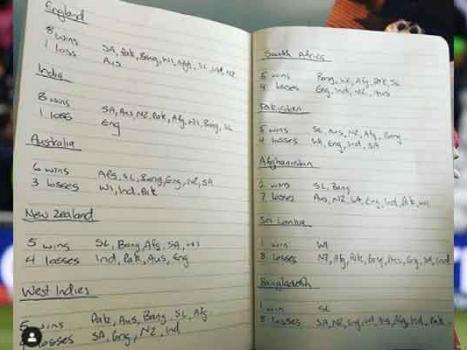 England
8 wins SA, Pak, Bang, WI, Afg, SL, Ind, NZ
1 loss Aus
India
8 wins SA, Aus, NZ, Pak, Afg, WI, Bang, SL
1 loss Eng
Australia
6 wins Afg, SL, Bang, Eng, NZ, SA
3 losses WI, Ind, Pak
New Zealand
5 wins SL, Bang, Afg, SA, WI
4 losses Ind, Pak, Aus, Eng
West Indies
5 wins Pak, Aus, Bang, SL, Afg
losses SA, Eng, NZ, Ind
South Africa
5 wins Bang, WI, Afg, Pak, SL
4 losses Eng, Ind, NZ, Aus
Pakistan
5 wins SL, Aus, NZ, Afg, Bang
4 losses WI, Eng, Ind, SA
Afghanistan
2 wins SL, Bang
7 losses Aus, NZ, SA, Eng, Ind, Pak, WI
Sri Lanka
1 win WI
8 losses NZ, Afg, Pak, Bang, Aus, Eng, SA, Ind
Bangladesh
1 wins SL
8 losses SA, NZ, Eng, WI, Aus, Afg, Ind, Pak